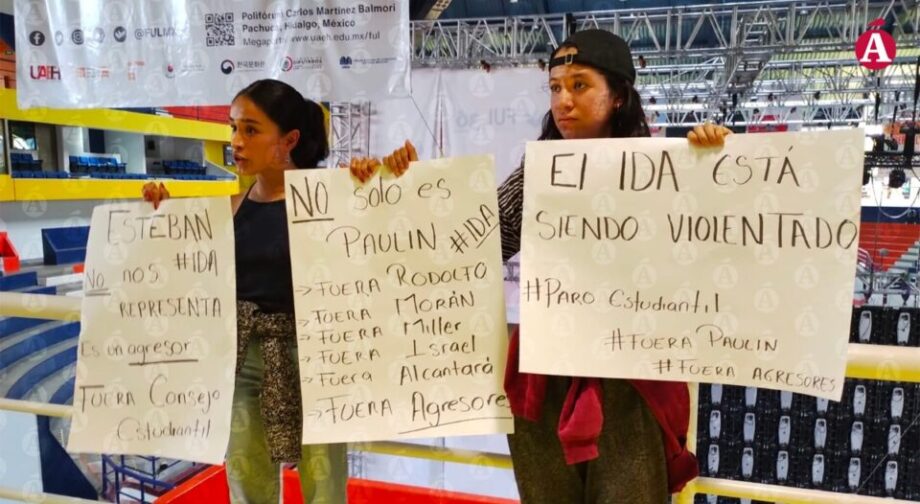 Polifórum Carlos Martínez Balmori
Pachuca, Hidalgo, México
Megaport: www.uaeh.edu.mx/ful
@FULMX
UAEH
한국문화원
Á
ESTEBAN
NO NOS #IDA
REPRESENTA
Es un agresor
FUERA CONSEJO
Estudiantil
NO solo es
PAULIN #IDA
→FUERA RODOLFO
→FUERA MORÁN
→FUERA Miller
→FUERA Israel
→Fuera Alcantará
→FUERA Agresores
El IDA ESTÁ
SIENDO VIOLENTADO
#PARO Estudiantil
#FUERA PAULIN
#FUERA AGRESORES